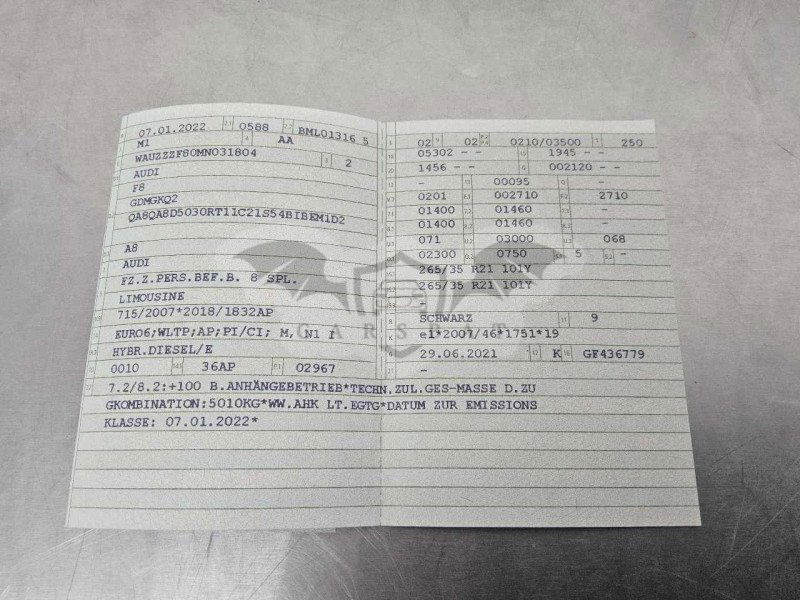 07.01.2022 2.1 0588 2.2 BML01316 5
M1 4 AA
WAUZZZF80MN031804 3 2
AUDI
F8
GDMGKQ2
QA8QA8D5030RT11C21S54BIBEM1D2
A8
AUDI
FZ.Z.PERS.BEF.B. 8 SPL.
LIMOUSINE
715/2007*2018/1832AP
EURO6;WLTP;AP;PI/CI; M, N1 I
HYBR.DIESEL/E
0010 36AP 02967
02 9 02 0210/03500 T 250
05302 - - 19 1945 - -
1456 - - G 002120 - -
- 13 00095 Q -
0201 F.1 002710 F.2 2710
01400 7.2 01460 -
01400 8.2 01460 -
071 U.2 03000 U.3 068
02300 O.2 0750 S.1 5 S.2 -
265/35 R21 101Y
265/35 R21 101Y
-
SCHWARZ 11 9
e1*2007/46*1751*19
29.06.2021 17 K 16 GF436779
-
7.2/8.2:+100 B.ANHÄNGEBETRIEB*TECHN.ZUL.GES-MASSE D.ZU
GKOMBINATION:5010KG*WW.AHK LT.EGTG*DATUM ZUR EMISSIONS
KLASSE: 07.01.2022*